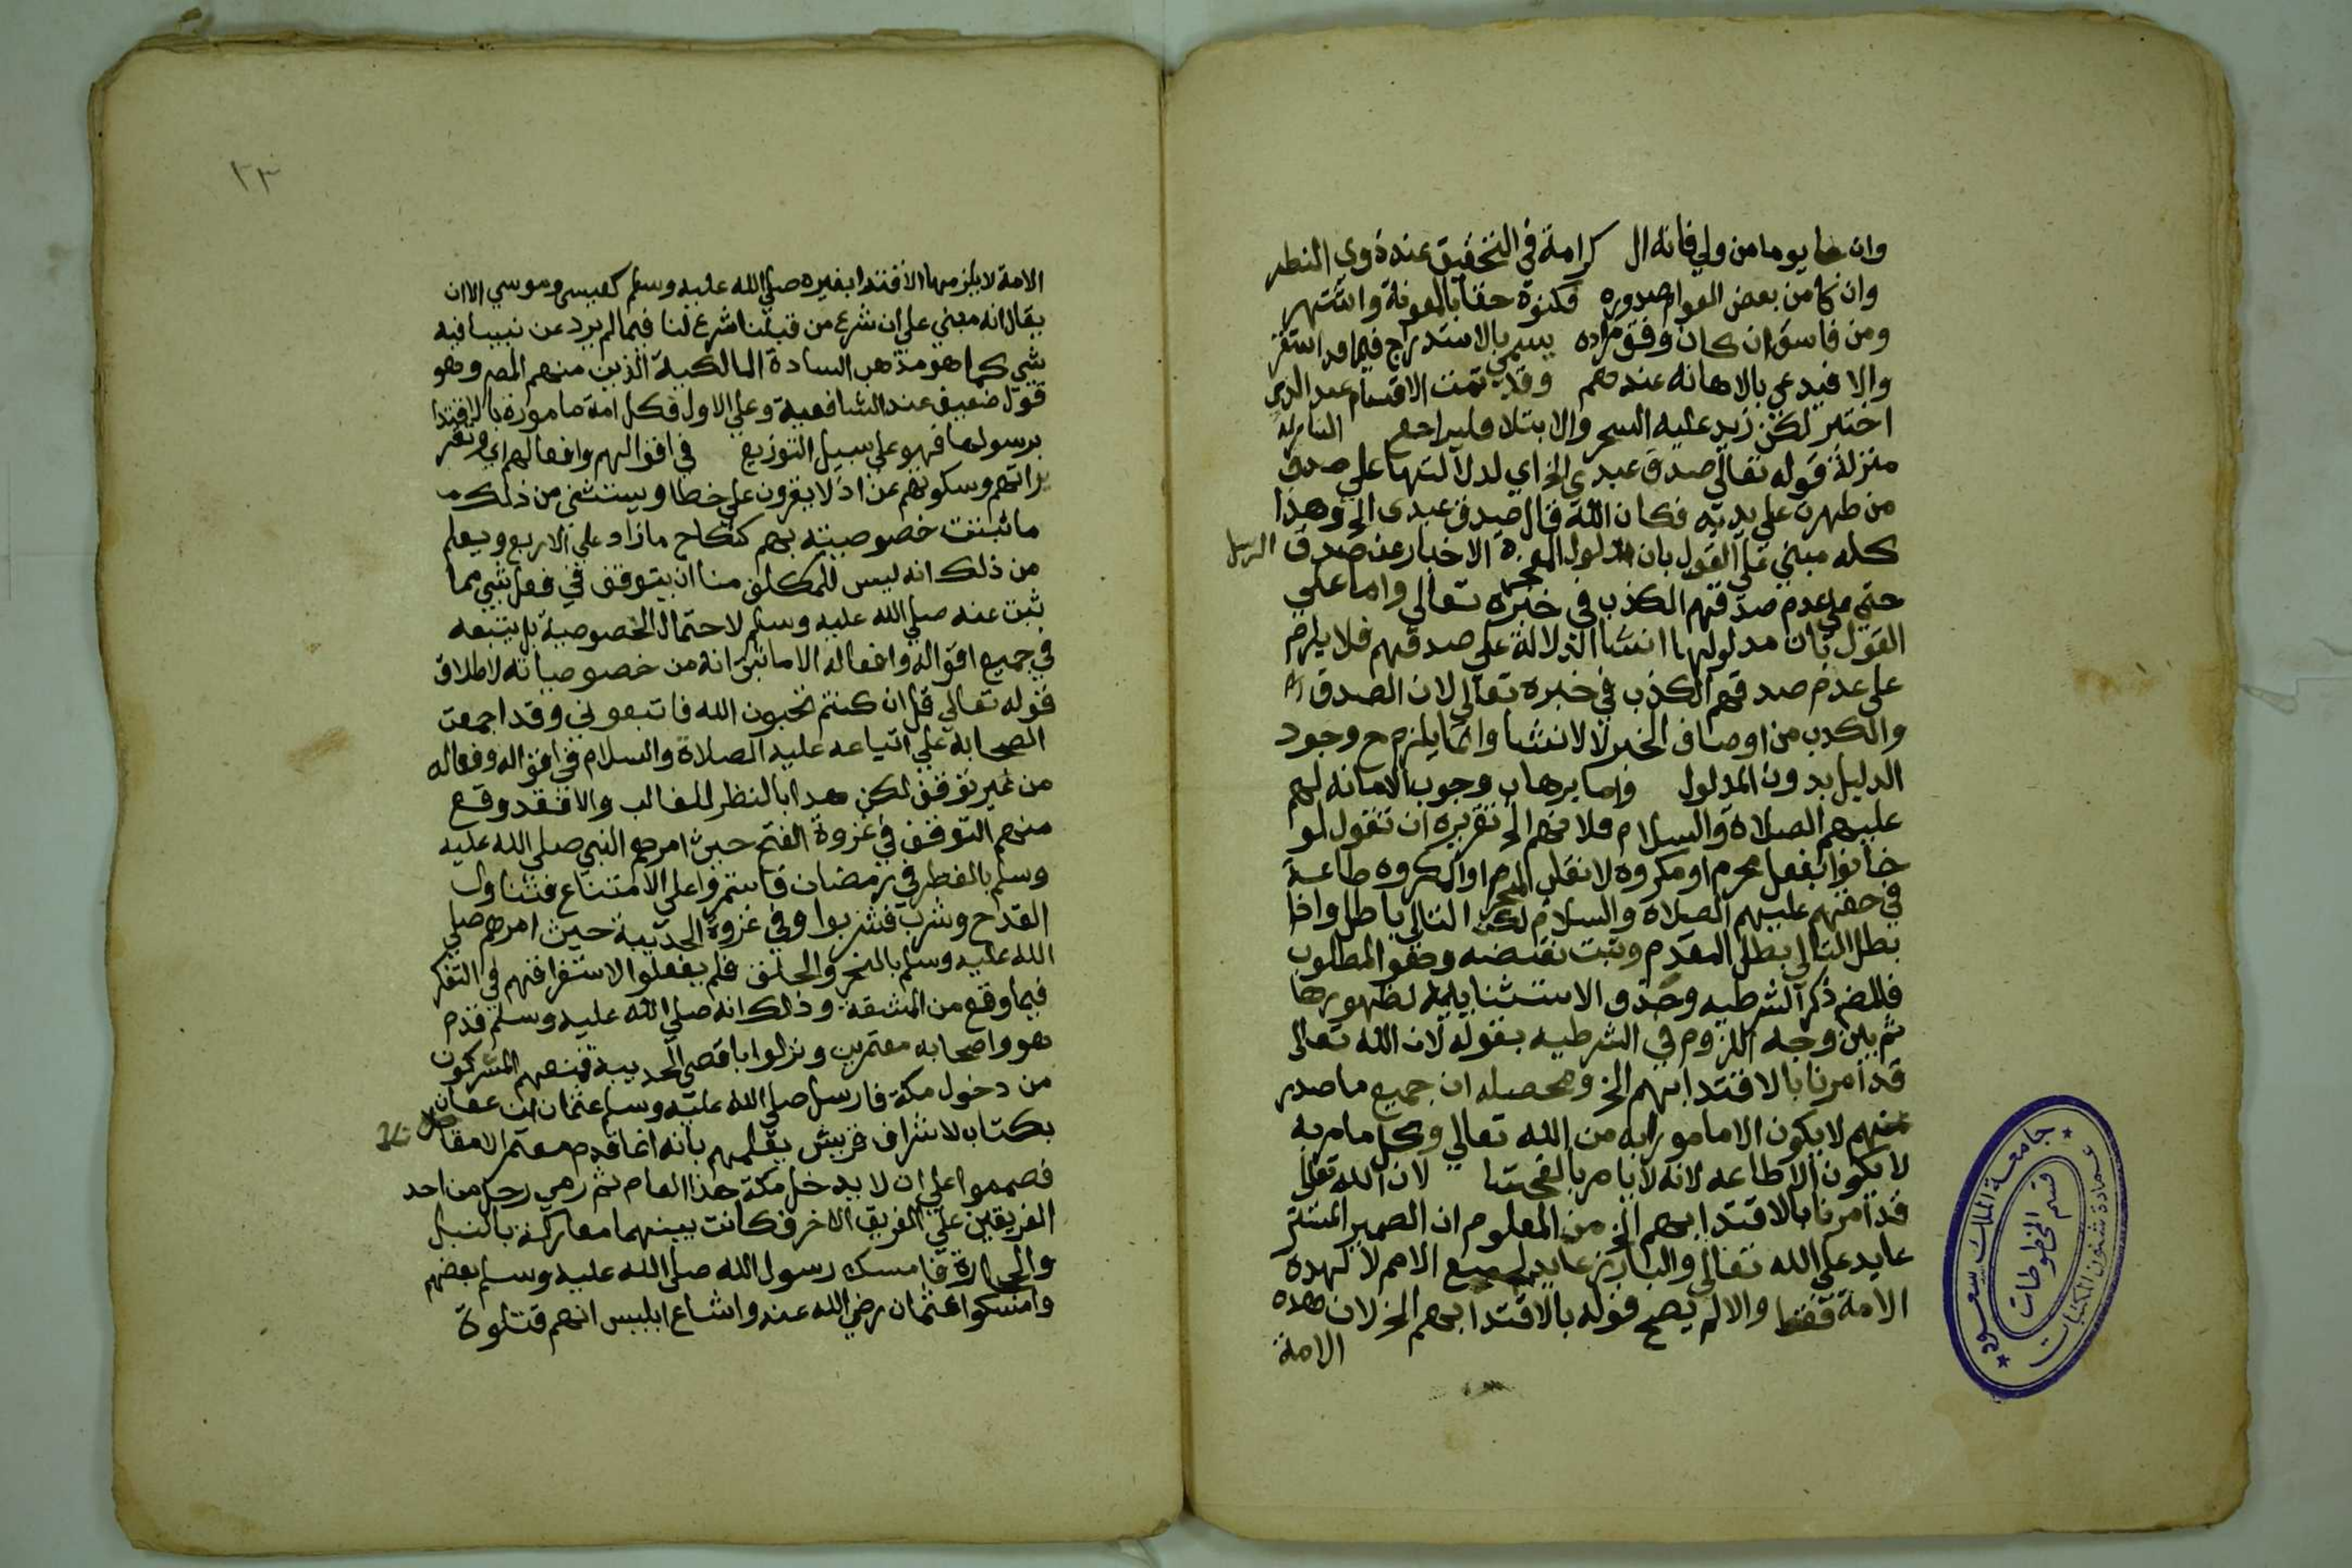 وان جا يوما من ولي فانه ال كرامة في التحقيق عند ذوي النظر
وان كا من بعض العوام صدوره فكنوه حقا بالمعونة واشتهر
ومن فاسق ان كان وفق مراده يسمي بالاستدراج فيما قد استقر
والا فيدعي بالاهانه عندهم وقد تمت الاقسام عند الذي
اختبر لكن زيد عليه السحر والابتلا فليراجع النازلة
منزلة قوله تعالي صدق عبدي الخ اي لدلالتها علي صدق
من ظهرت علي يديه فكان الله قال صدق عبدي الخ وهذا
كله مبني علي القول بان مدلول المعجزة الاخبار عن صدق الرسل
حتي علي عدم صدقهم الكذب في خبره تعالي واما علي
القول بان مدلولها انشا الدلالة علي صدقهم فلا يلزم
علي عدم صدقهم الكذب في خبره تعالي لان الصدق
والكذب من اوصاف الخبر لا لانشا وانما يلزم ح وجود
الدليل بدون المدلول واما برهان وجوب الامانه لهم
عليهم الصلاة والسلام فلانهم الخ تقريره ان تقول لو
خانوا بفعل محرم او مكروه لانقلب المحرم او المكروه طاعة
في حقهم عليهم الصلاة والسلام لكن التالي باطل واذا
بطل التالي بطل المقدم وثبت نقيضه وهو المطلوب
فالمص ذكر الشرطيه وحذف الاستثنائيه لظهورها
ثم بين وجه اللزوم في الشرطيه بقوله لان الله تعالي
قد امرنا بالاقتدا بهم الخ ومحصله ان جميع ما صدر
منهم لا يكون الا مامورا به من الله تعالي وكل مامور به
لا يكون الا طاعه لانه لا يامر بالفحشا لان الله تعالي
قد امرنا بالاقتدا بهم الخ من المعلوم ان الضمير المستتر
عايد علي الله تعالي والبارز عايد لجميع الامم لا لهذه
الامة فقط والا لم يصح قوله بالاقتدا بهم الخ لان هذه
الامة
٢٣
الامة لا يلزمها الاقتدا بغيره صلي الله عليه وسلم كعيسي وموسي الا ان
يقال انه مبني علي ان شرع من قبلنا شرع لنا فيما لم يرد عن نبينا فيه
شي كما هو مذهب السادة المالكية الذين منهم المص وهو
قول ضعيف عند الشافعية وعلي الاول فكل امة مامورة بالاقتدا
برسولها فهو علي سبيل التوزيع في اقوالهم وافعالهم اي وتقر
يراتهم وسكوتهم عن اذ لا يقرون علي خطا ويستثني من ذلك
ما ثبتت خصوصيته بهم كنكاح ما زاد علي الاربع ويعلم
من ذلك انه ليس للمكلف منا ان يتوقف في فعل شي مما
ثبت عنه صلي الله عليه وسلم لاحتمال الخصوصية بل يتبعه
في جميع اقواله وافعاله الا ما ثبت انه من خصوصياته لاطلاق
قوله تعالي قل ان كنتم تحبون الله فاتبعوني وقد اجمعت
الصحابه علي اتباعه عليه الصلاة والسلام في اقواله وفعاله
من غير توقف لكن هذا بالنظر للغالب والا فقد وقع
منهم التوقف في غزوة الفتح حين امرهم النبي صلي الله عليه
وسلم بالفطر في رمضان فاستمروا علي الامتناع فتناول
القدح وشرب فشربوا وفي غزوة الحديبة حين امرهم صلي
الله عليه وسلم بالنحر والحلق فلم يفعلوا لاستغراقهم في التفكر
فيما وقع من المشقة وذلك انه صلي الله عليه وسلم قدم
هو واصحابه معتمرين ونزلوا باقصي الحديبة فمنعهم المشركون
من دخول مكة فارسل صلي الله عليه وسلم عثمان ابن عفان
بكتاب لاشراف قريش يعلمهم بانه انما قدم معتمرا لا مقاتلا
فصمموا علي ان لا يدخل مكة هذا العام ثم رمي رجل من احد
الفريقين علي الفريق الاخر فكانت بينهما معاركة بالنبل
والحجارة فامسك رسول الله صلي الله عليه وسلم بعضهم
وامسكوا عثمان رضي الله عنه واشاع ابليس انهم قتلوة
جامعة الملك سعود
قسم المخطوطات
عمادة شئون المكتبات